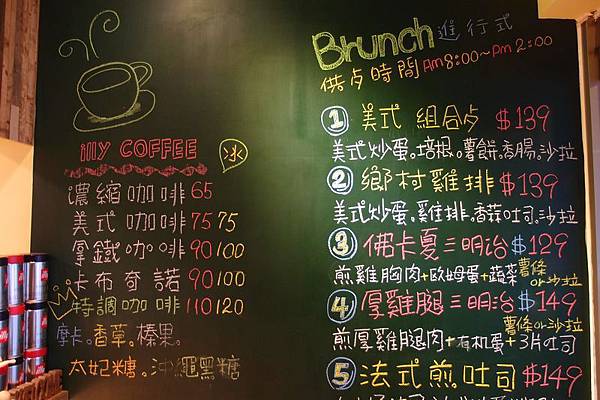 illy COFFEE
冰
濃縮咖啡 65
美式咖啡 75 75
拿鐵咖啡 90 100
卡布奇諾 90 100
特調咖啡 110 120
摩卡。香草。榛果。
太妃糖。沖繩黑糖
Brunch 進行式
供点時間 AM 8:00~PM 2:00
① 美式 組合点 $139
美式炒蛋。培根。薯餅。香腸。沙拉
② 鄉村雞排 $139
美式炒蛋。雞排。香蒜吐司。沙拉
③ 佛卡夏三明治 $129
煎雞胸肉+歐姆蛋+蔬菜 薯條or沙拉
④ 厚雞腿三明治 $149
薯條or沙拉
煎厚雞腿肉+有机蛋+3片吐司
⑤ 法式煎吐司 $149